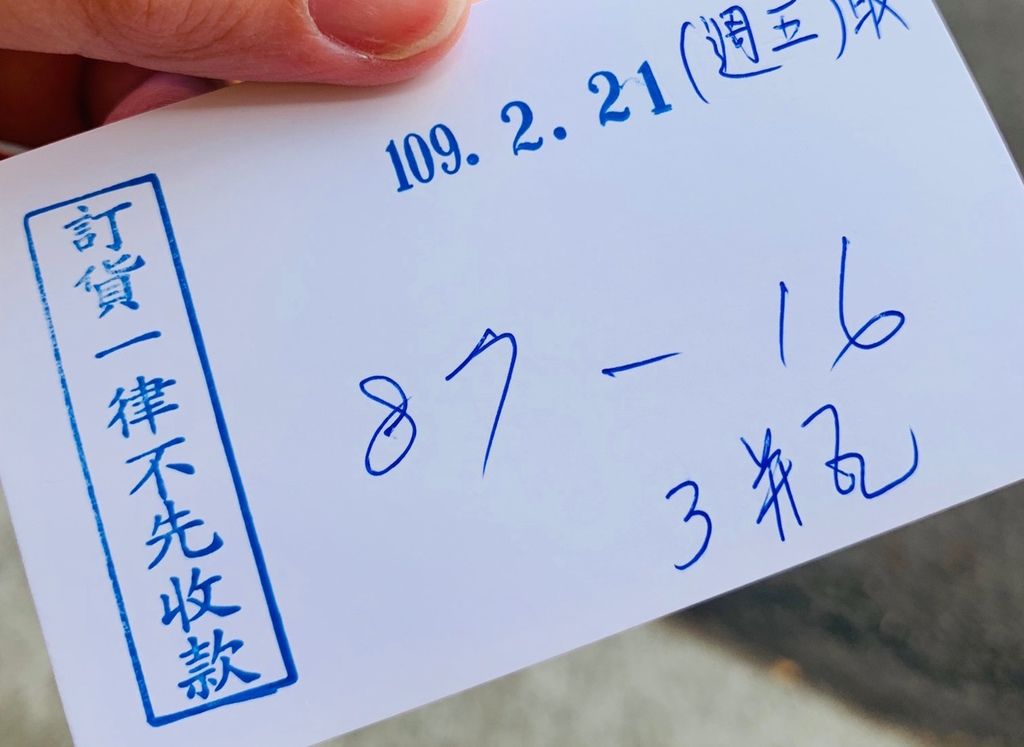 109. 2. 21 (週五)取
訂貨一律不先收款
87 - 16
3瓶